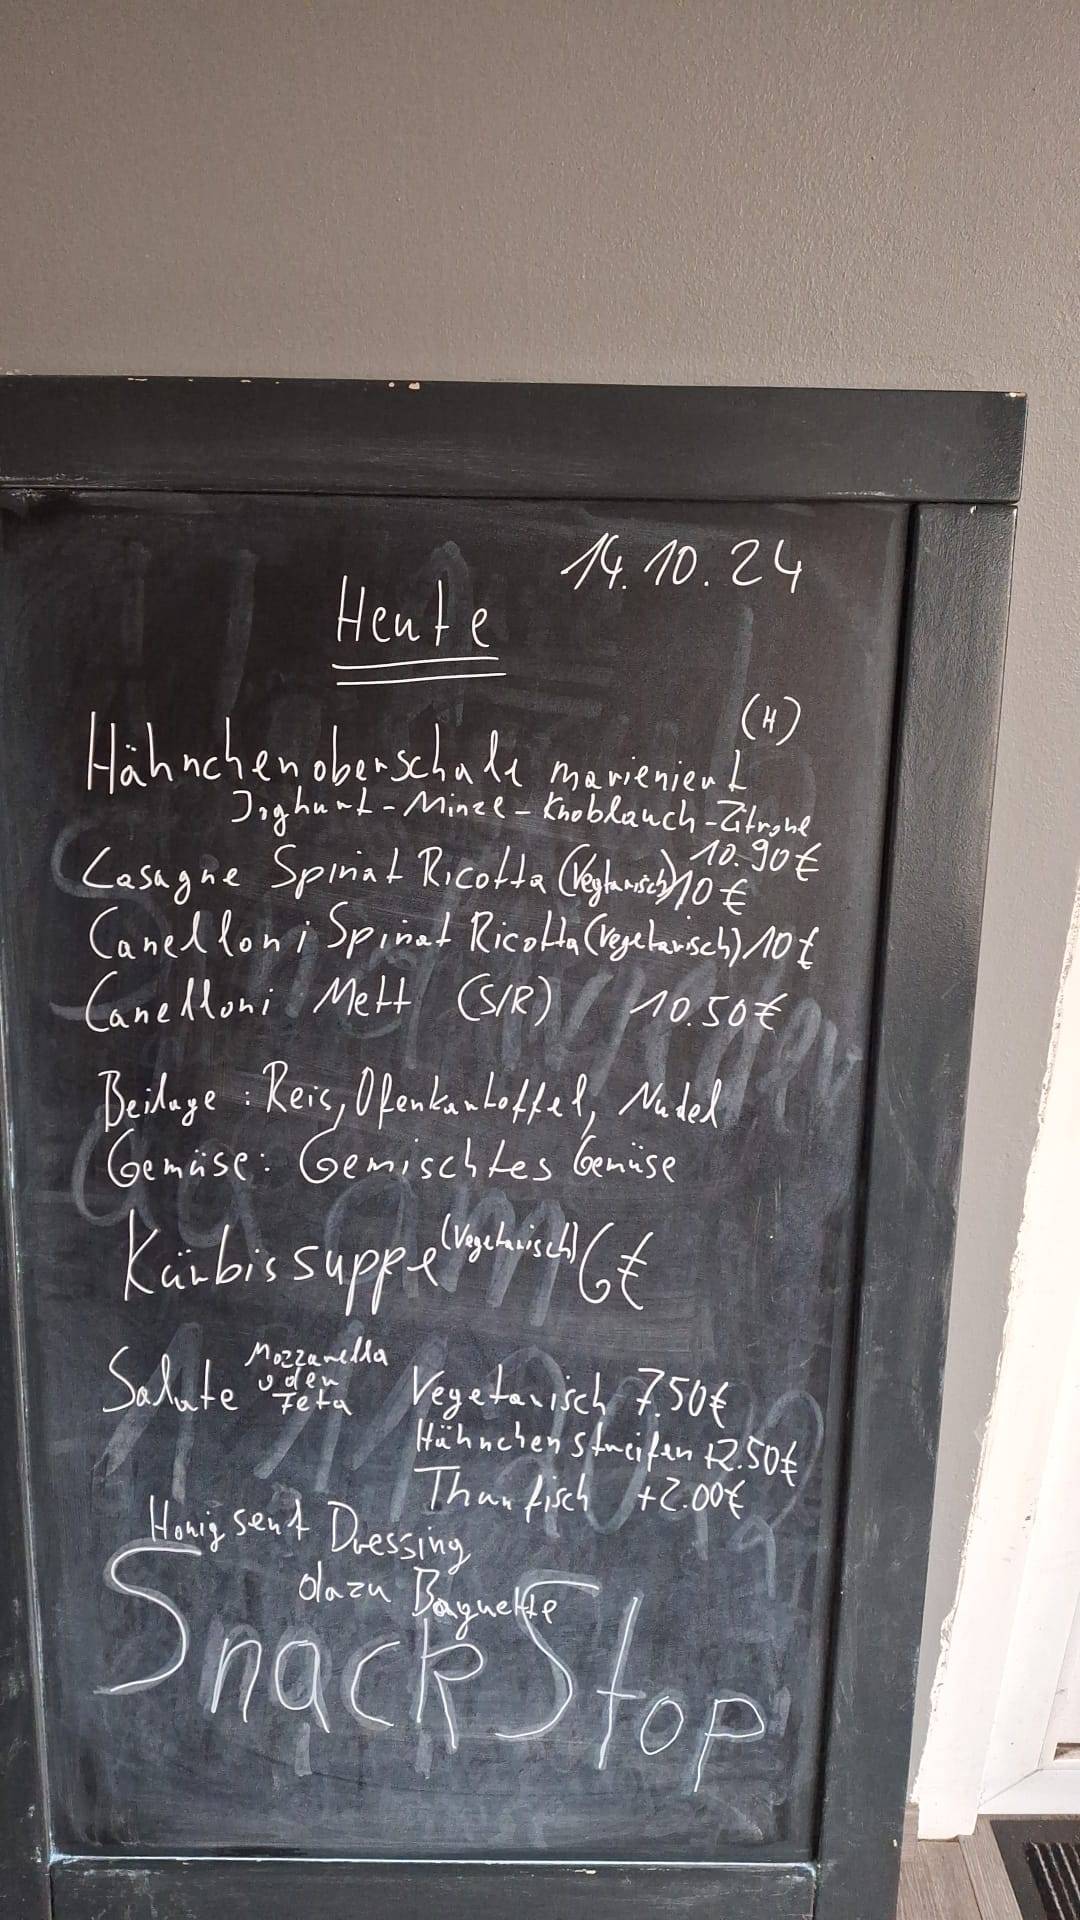 14.10.24
Heute
(H)
Hähnchenoberschale marieniert
Joghurt - Minze - Knoblauch - Zitrone
10.90€
Lasagne Spinat Ricotta (Vegtarisch) 10€
Canelloni Spinat Ricotta (Vegetarisch) 10€
Canelloni Mett (S/R) 10.50€
Beilage : Reis, Ofenkartoffel, Nudel
Gemüse: Gemischtes Gemüse
Kürbissuppe (Vegetarisch) 6€
Salate Mozzarella oder Feta Vegetarisch 7.50€
Hähnchenstreifen +2.50€
Thunfisch +2.00€
Honigsenf Dressing
dazu Baguette
SnackStop